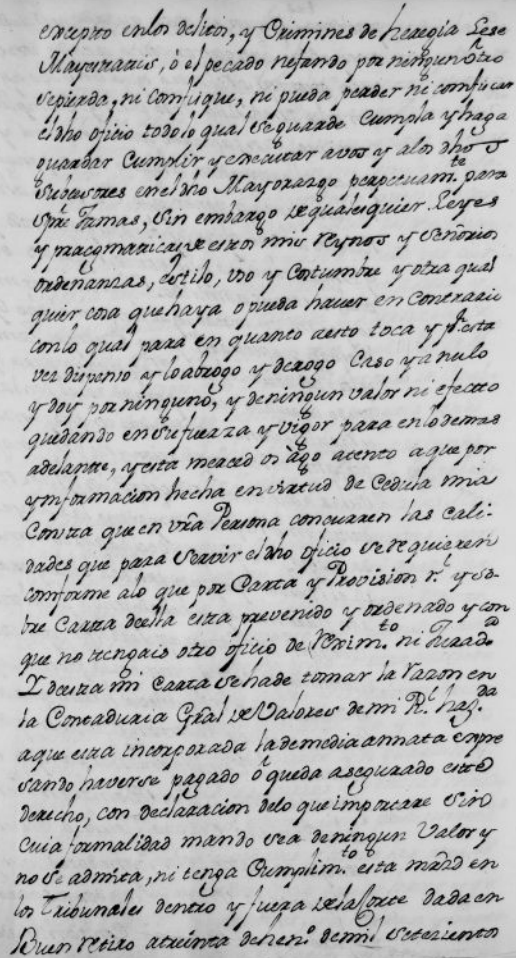 excepto en los delitos, y Crimines de heregia Lese
Mayestatis, ò el pecado nefando por ningun otro
sepierda, ni confisque, ni pueda perder ni confiscar
el dho oficio todo lo qual se guarde cumpla y haga
guardar cumplir y executar avos y alos dhos
subcesores en el dho Mayorazgo perpetuamte. para
spre Jamas, sin embargo de qualesquier Leyes
y pracgmaticas de estos mis reynos y señorios
ordenanzas, estilo, uso y costumbre y otra qual
quier cosa que haya o pueda haver en contrario
con lo qual para en quanto aesto toca y pr. esta
vez dispenso y lo abrogo y derogo Caso y anulo
y doy por ninguno, y deningun valor ni efecto
quedando en su fuerza y vigor para enlo demas
adelante, y esta merced os ago atento a que por
ynformacion hecha en virtud de Cedula mia
Consta que en vra Persona concurren las cali-
dades que para servir el dho oficio se requieren
conforme alo que por Carta y Provision rl. y so-
bre Carta de ella esta prevenido y ordenado y con
que no tengais otro oficio de rexim.to ni
Y de esta mi carta se ha de tomar la razon en
la Contaduria Gral de Valores de mi Rl. haz.da
a que esta incorporada la de media annata expre
sando haverse pagado ò queda asegurado este
derecho, con declaracion delo que importare sin
cuia formalidad mando sea deningun Valor y
no se admita, ni tenga Cumplim.to esta mrzd en
los Tribunales dentro y fuera de la Corte dada en
Buen retiro atreinta de hen.o de mil setecientos